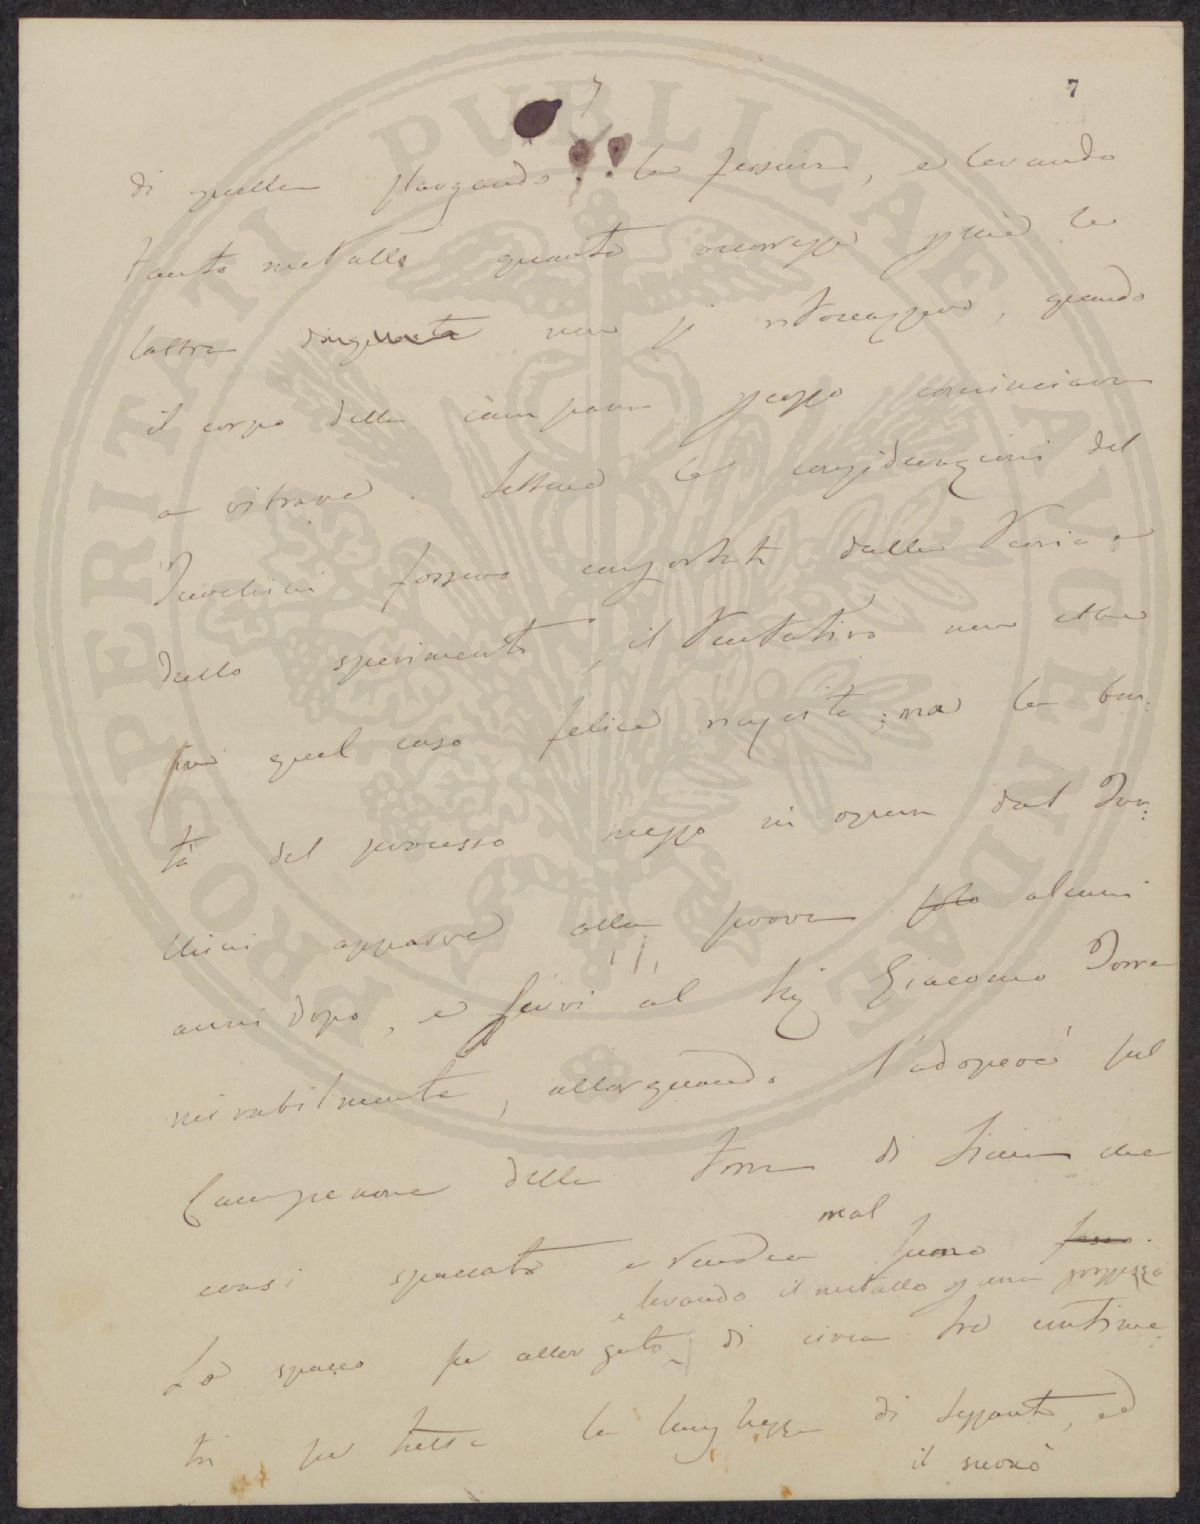 7
7
di quella slargando la fessura, e levando
tanto metallo quanto occorresse perché le
labbra non si ritoccassero, quando
il corpo della campana scosso cominciava
a vibrare. Sebbene le considerazioni del
Turchini fossero confortate dalla teoria e
dallo sperimento, il tentativo non ebbe
in quel caso felice riuscita; ma la bon:
tà del processo messo in opera dal Tur:
chini apparve alla prova solo alcuni
anni dopo, e servì al Sig Giacomo Torre
mirabilmente, allorquando l'adoperò sul
Campanone della Torre di Siena che
erasi spaccato e rendea mal suono fesso.
Lo spacco fu allargato, levando il metallo p una grossezza
di circa tre centime
tri per tutta la lunghezza di sessanta, ed
il suono
PROSPERITATI PUBLICAE AUGENDAE